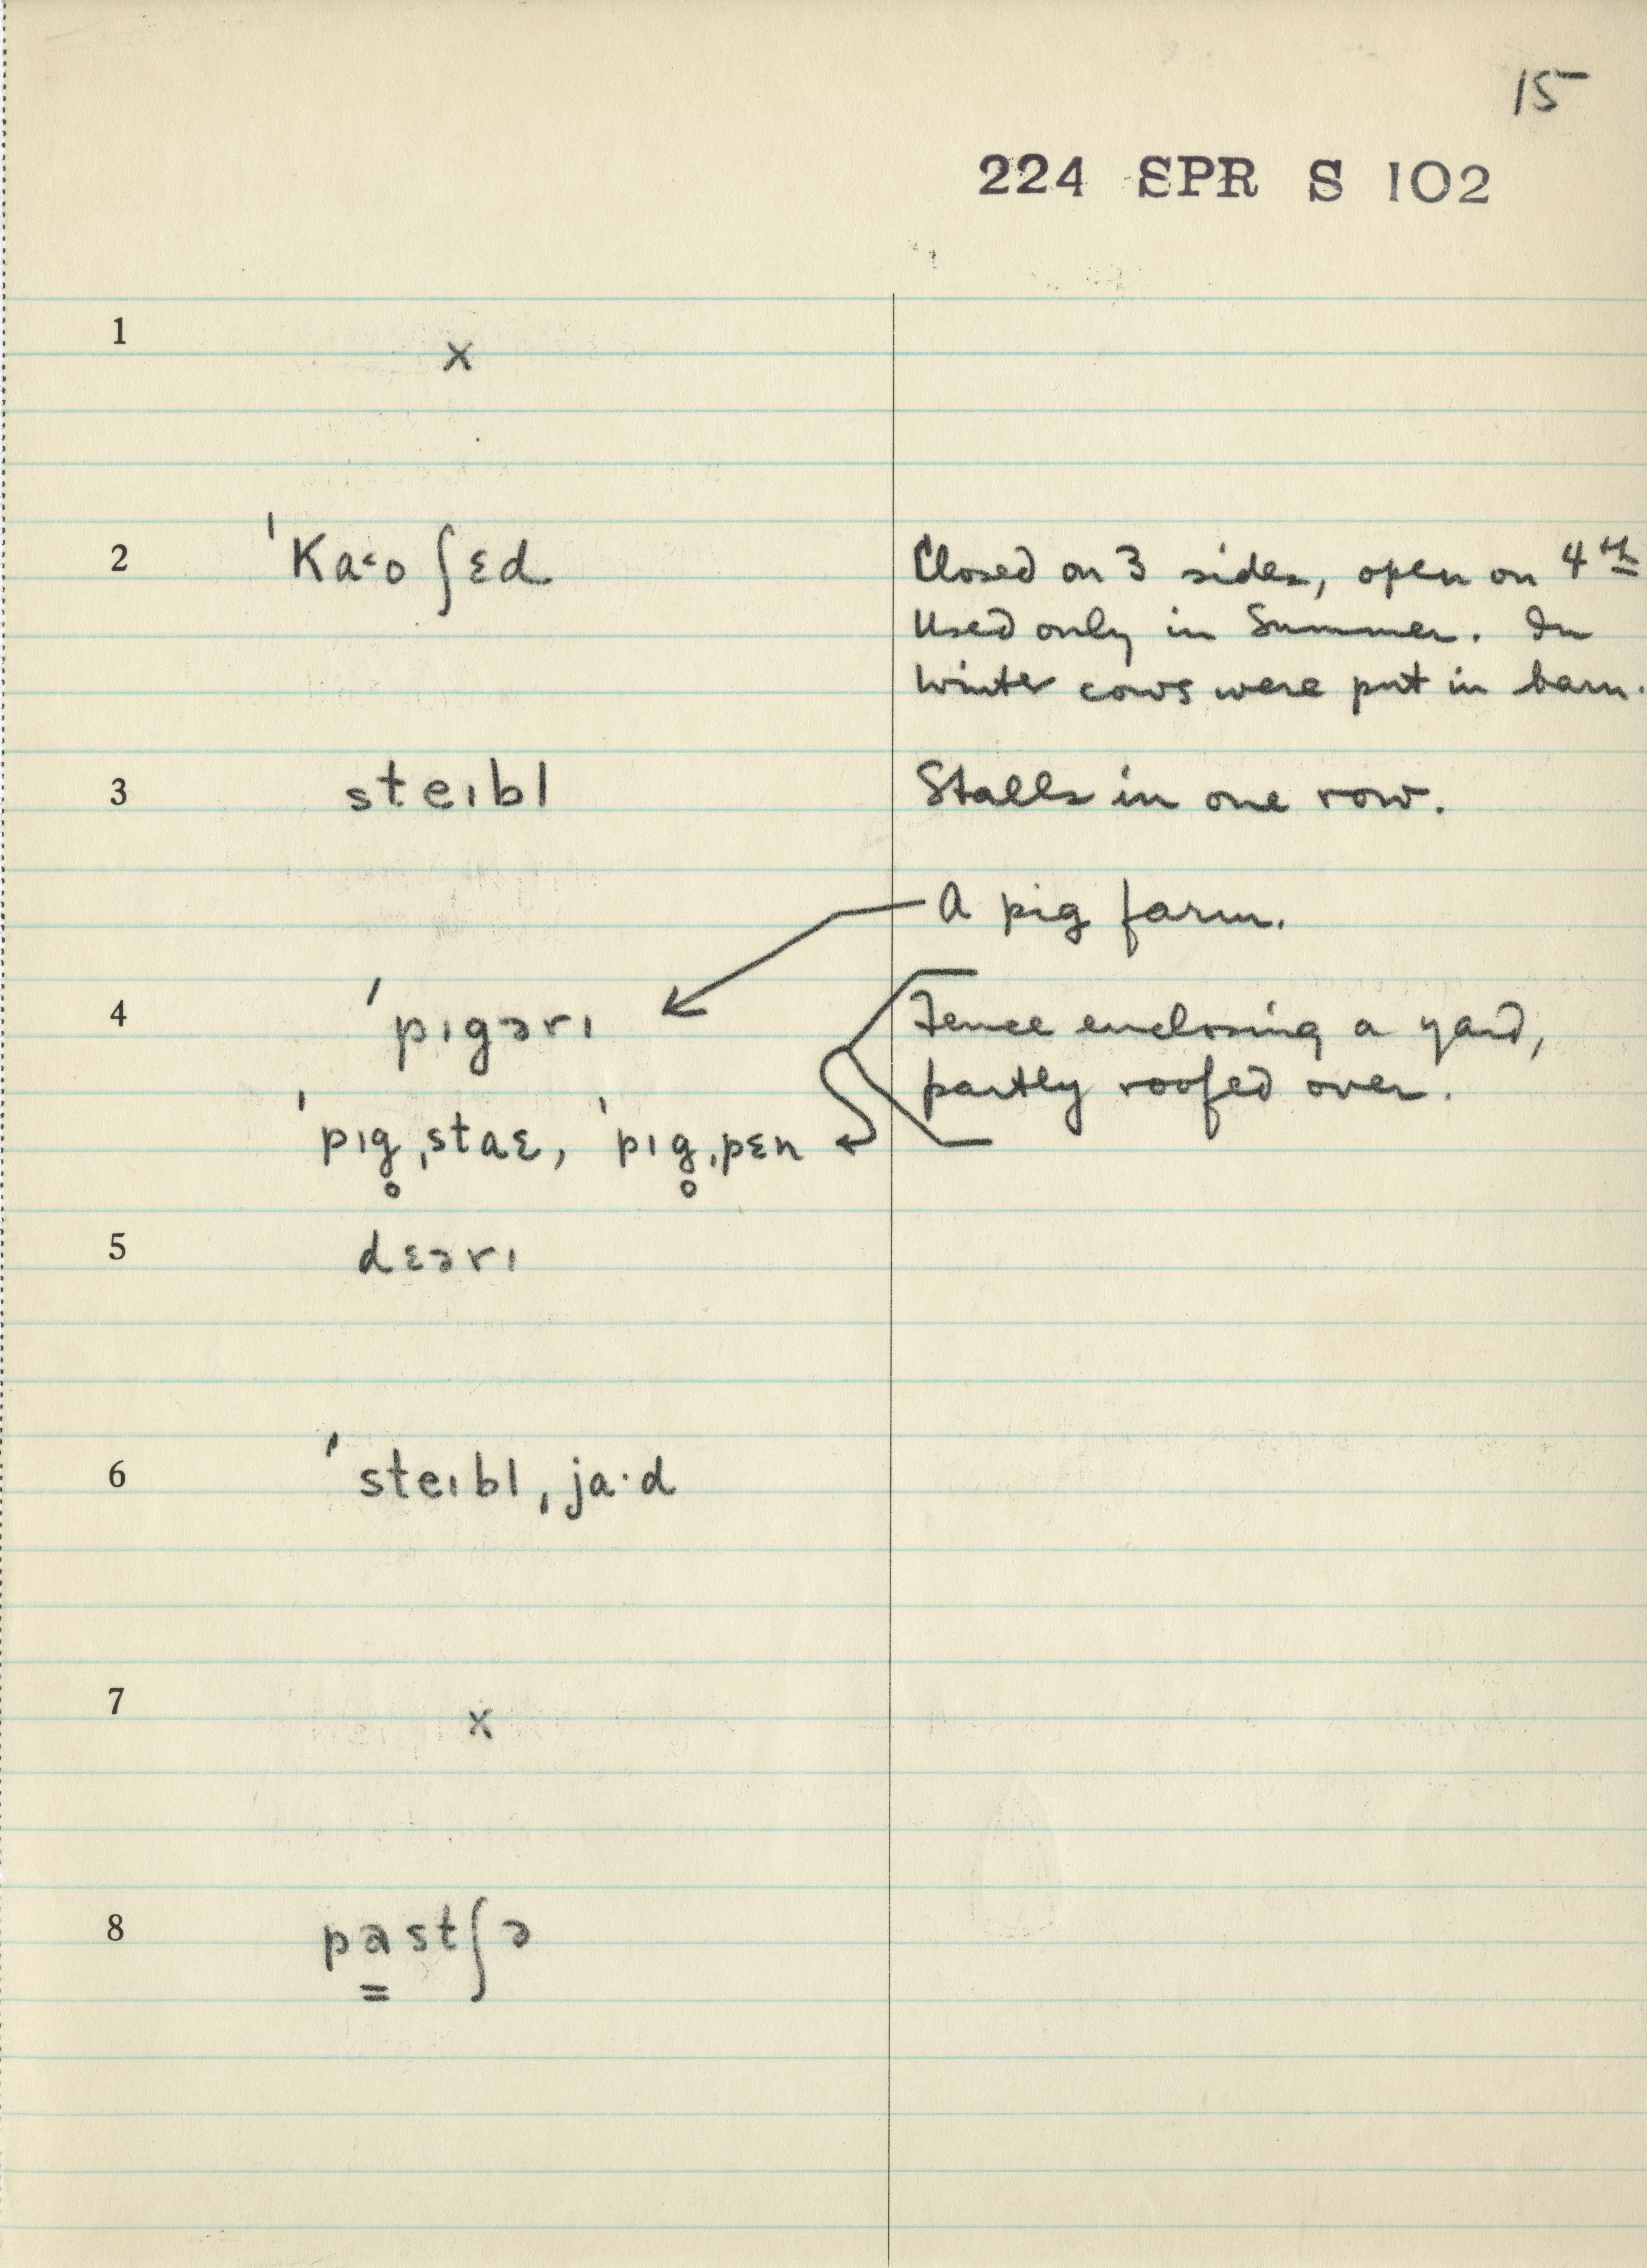 15
224 SPR S 102
1 x
2 ˈKa˂o ʃɛd Closed on 3 sides, open on 4th
Used only in Summer. In
Winter cows were put in barn.
3 steɪbl Stalls in one row.
A pig farm.
4 ˈpɪgərɪ Fence enclosing a yard,
partly roofed over.
ˈpɪg̥ˌstaɛ, ˈpɪg̥ˌpɛn
5 dɛərɪ
6 ˈsteɪblˌja·d
7 x
8 pa͇stʃə